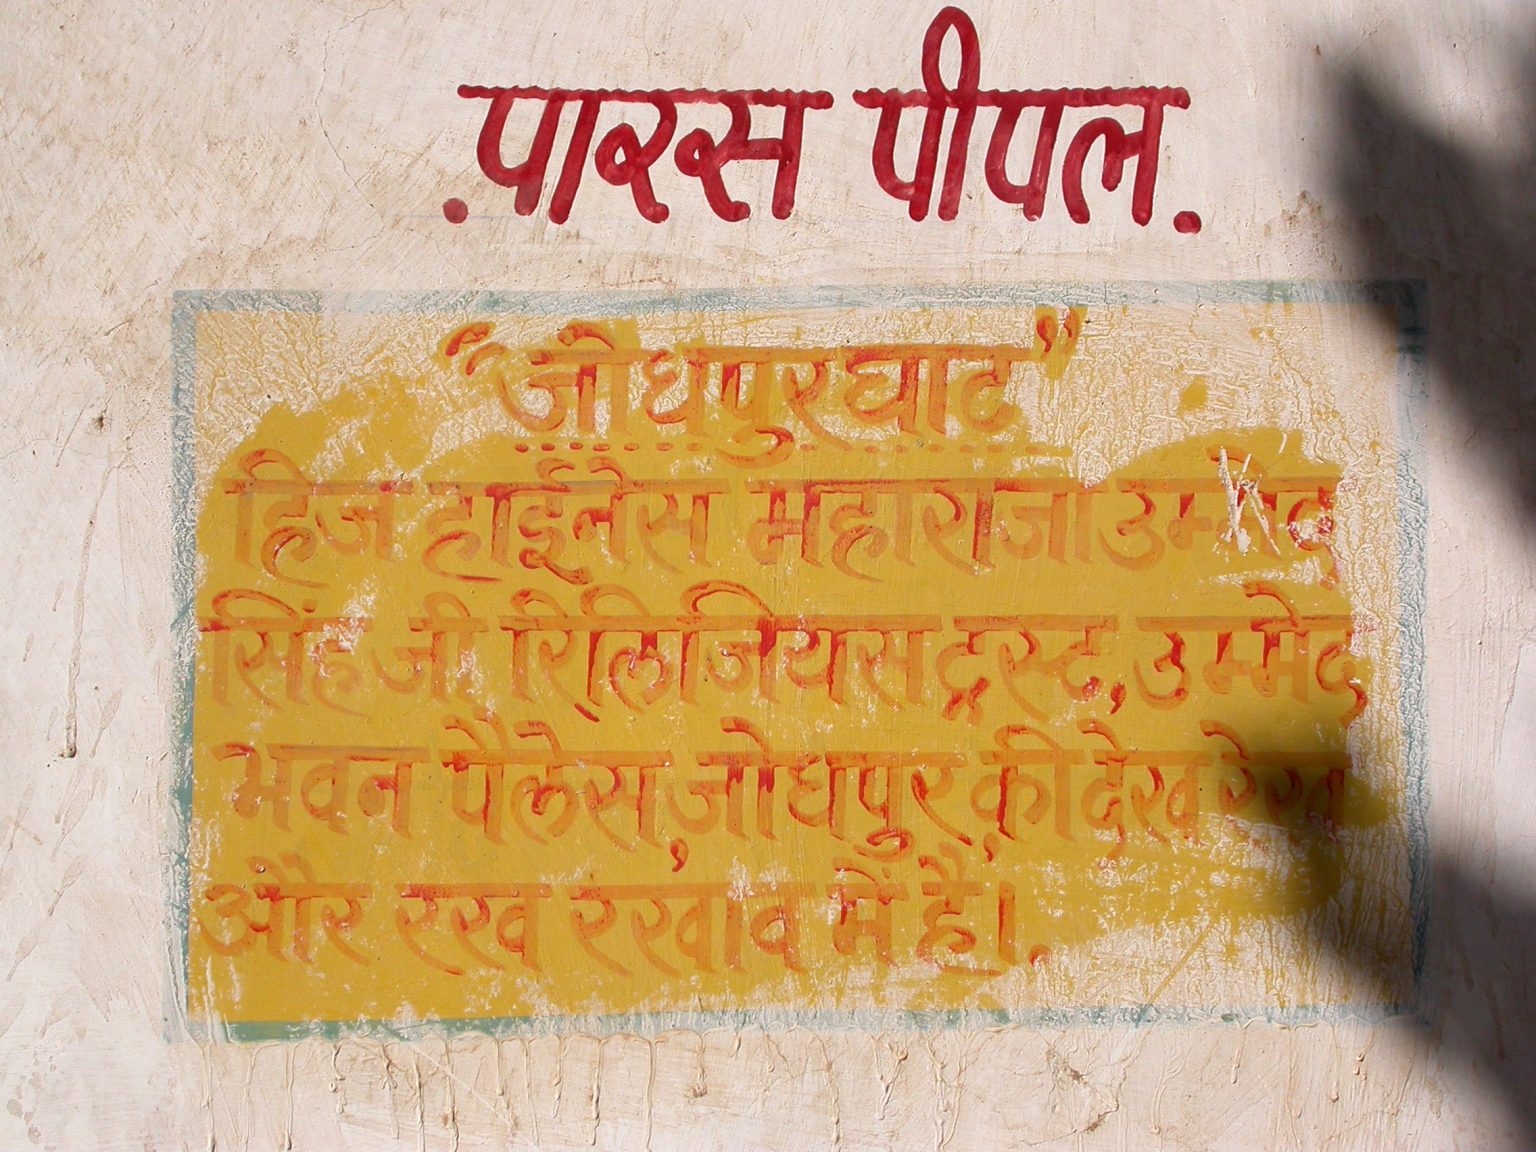 .पारस पीपल.
"जोधपुरघाट"
हिज हाईनेस महाराजा उम्मेद
सिंह जी रिलिजियस ट्रस्ट, उम्मेद
भवन पैलेस, जोधपुर, की देख रेख
और रख रखाव में है।.